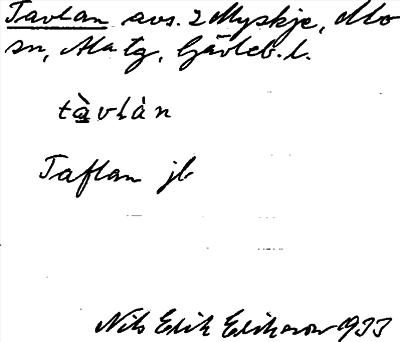 Tavlan avs. 2 Myskje, Mo
sn, Ala tg, Gävleb. l.
tàvlàn
Taflan jb
Nils Erik Eriksson 1933